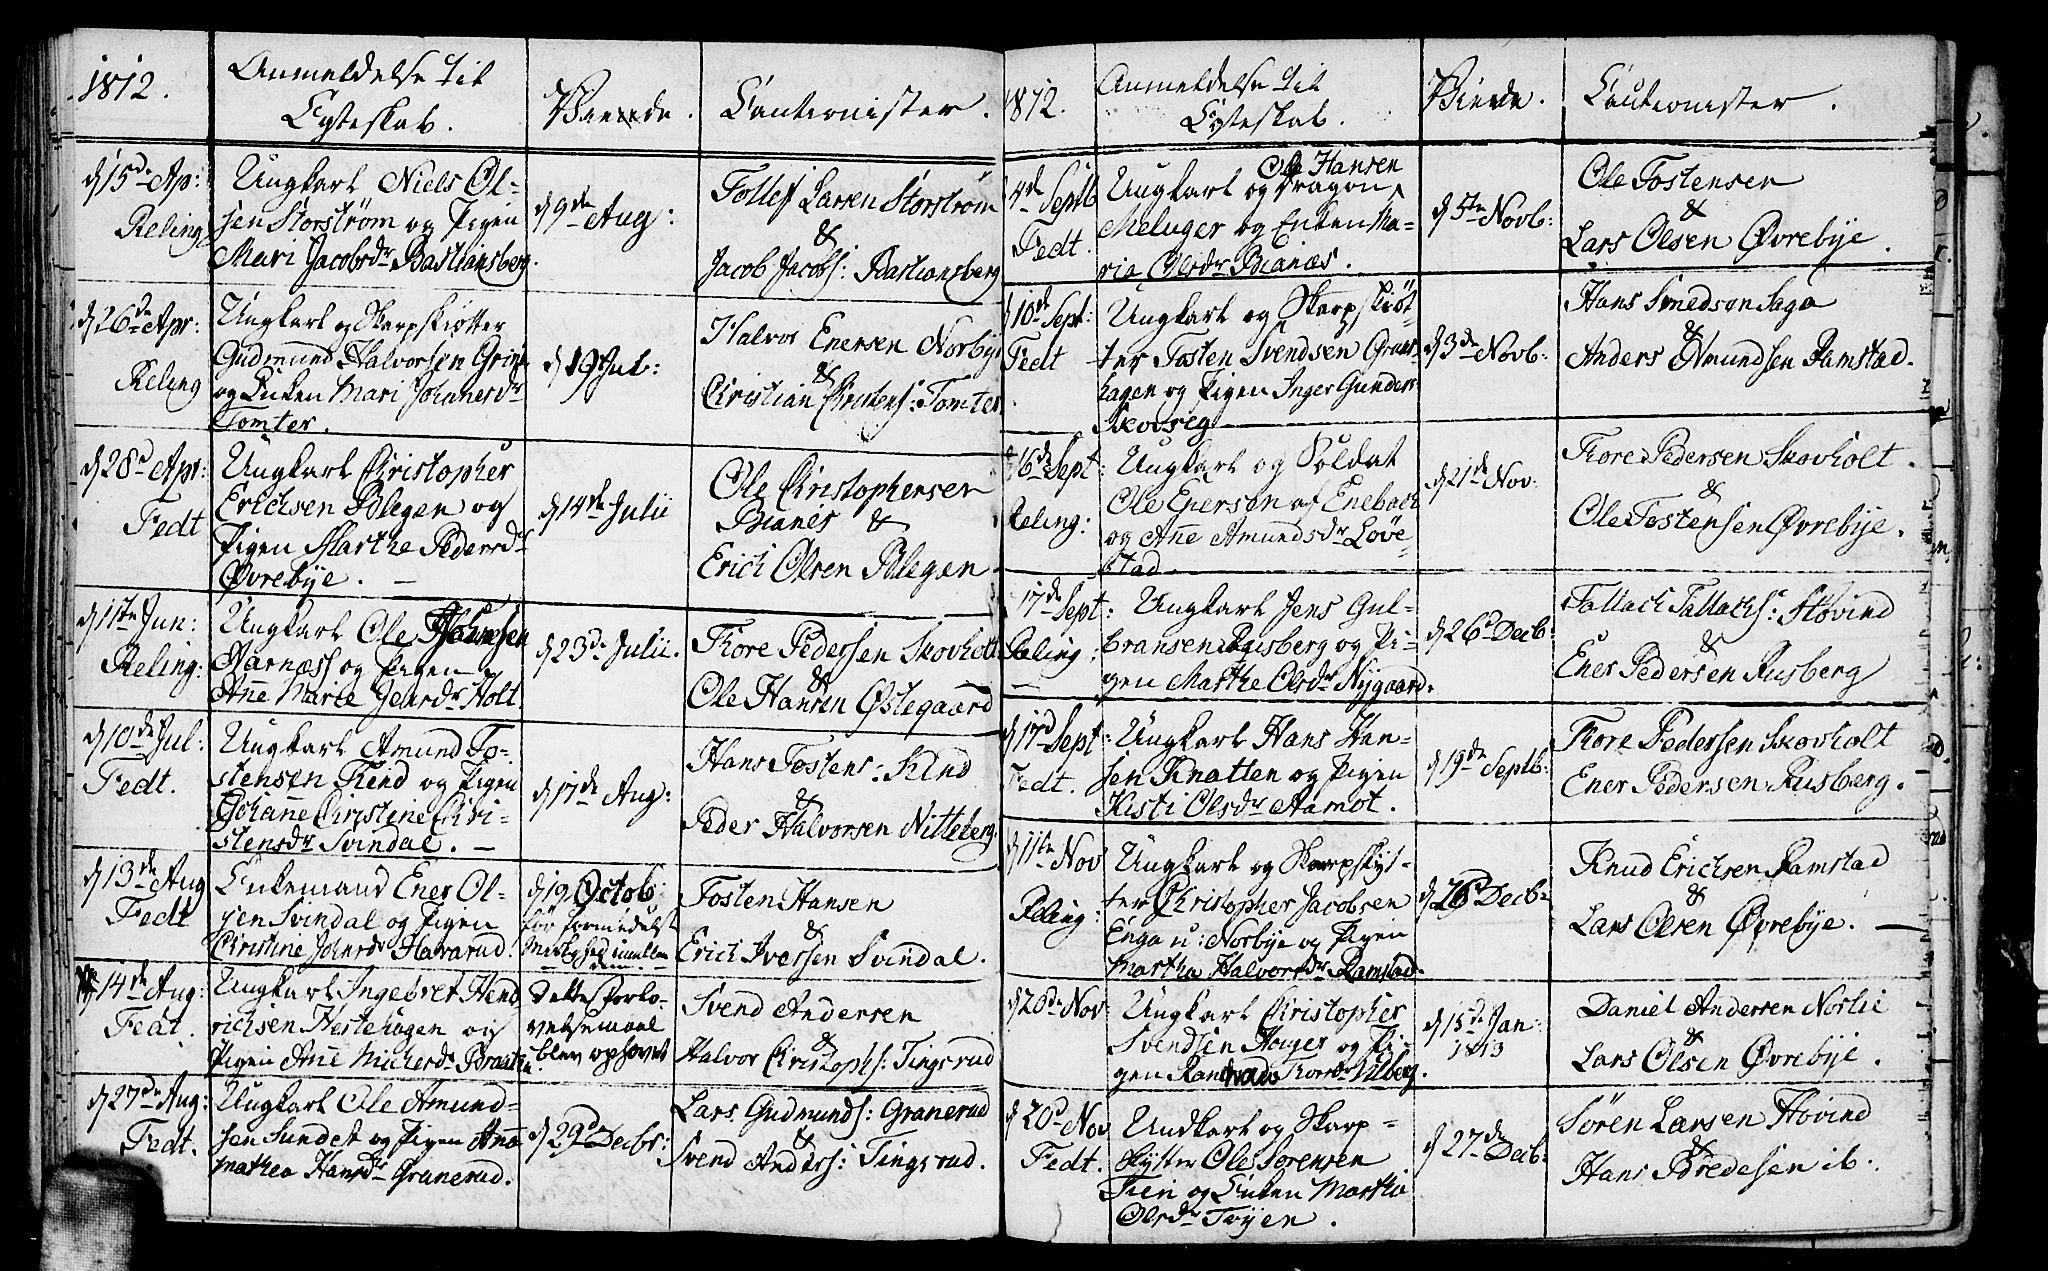 1812.
Anmeldelse til
Egteskab.
Viende.
Cautionister.
d 15de Ap:
Reling
Ungkarl Niels Ol-
sen Storstrøm og Pigen
Mari Jacobsdr Bastiansberg.
d 9de Aug:
Tollef Larsen Storstrøm
&
Jacob Jacobs: Bastiansberg
d 26de Apr:
Reling
Ungkarl og Skarpskiøtter
Gudmund Halvorsen Grin
og Enken Mari Johnersdr
Tomter.
d 19 Jul:
Halvor Enersen Norbye
&
Christian Christens: Tomter
d 28de Apr:
Fedt
Ungkarl Christopher
Erichsen Blegen og
Pigen Marthe Pedersdr
Øvrebye. —
d 14de Julii
Ole Christophersen
Bianes &
Erich Olsen Blegen
d 11te Jun:
Reling:
Ungkarl Ole Johnsen
Aarnæss og Pigen
Anne Marie Jensdr Holt.
d 23de Julii.
Tore Pedersen Skovholt
&
Ole Hansen Østegaard
d 10de Jul:
Fedt.
Ungkarl Amund To-
stensen Kind og Pigen
Johanne Christine Chri-
stensdr Svindal. —
d 17de Aug:
Hans Tostens: Kind
&
Peder Halvorsen Nitteberg
d 13de Aug
Fedt
Enkemand Ener Ol-
sen Svindal og Pigen
Christine Johnsdr Havarud.
d 19 Octob:
for formedelst
imellem
dem.
Tosten Hansen
&
Erich Iversen Svindal.
d 14de Aug:
Fedt.
Ungkarl Ingebret Hend
richsen Hestehagen og
Pigen Anne Michelsdr Braate
Dette Forlo-
velsemaal
blev ophævet
Svend Andersen
&
Halvor Christophs: Tingsrud
d 27de Aug:
Fedt.
Ungkarl Ole Amund-
sen Sundet og Pigen Anne
mathea Hansdr Granerud.
d 29de Decbr:
Lars Gudmunds: Granerud
&
Svend Anders: Tingsrud.
1812.
Anmeldelse til
Egteskab.
Viende.
Cautionister.
4de Septb
Fedt.
Ole Hansen
Ungkarl og Dragon
Meluger og Enken Ma-
ria Olsdr Bianæs.
d 5te Novb:
Ole Tostensen
&
Lars Olsen Øvrebye.
d 10de Sept:
Fedt
Ungkarl og Skarpskiøt-
ter Tosten Svendsen Graas-
hagen og Pigen Inger Gunders
Skovseg
d 3de Novb:
Hans Smedsensaga
&
Anders Amundsen Ramstad.
16de Sept:
Reling:
Ungkarl og Soldat
Ole Enersen af Enebach
og Anne Amundsdr Løve-
stad
d 21de Nov:
Tore Pedersen Skovholt.
&
Ole Tostensen Øvrebye.
17de Sept:
Reling.
Ungkarl Jens Gul-
bransen Rusberg og Pi-
gen Marthe Olsdr Nygaard.
d 26de Decb:
Tallach Tallachs: Høvind
&
Ener Pedersen Rusberg
d 17d Sept:
Fedt.
Ungkarl Hans Han-
sen Knatten og Pigen
Kisti Olsdr Aamot.
d 19de Septb:
Tore Pedersen Skovholt
Ener Pedersen Rusberg.
d 11te Nov
Reling:
Ungkarl og Skarpskyt-
ter Christopher Jacobsen
Enga u: Norbye og Pigen
Martha Halvorsdr Ramstad.
d 26d Decb:
Knud Erichsen Ramstad
&
Lars Olsen Øvrebye. —
d 20de Nov
Ungkarl Christopher
Svendsen Hauger og Pi-
gen Torersdr Vilberg.
d 15de Jan:
1813
Daniel Andersen Norlie
&
Lars Olsen Øvrebye.
d 20d Nov
Fedt.
Undkarl og Skarp-
skytter Ole Sørensen
Tien og Enken Martha
Olsdr Tøyen.
d 27de Decb:
Søren Larsen Høvind
&
Hans Bredesen ib: